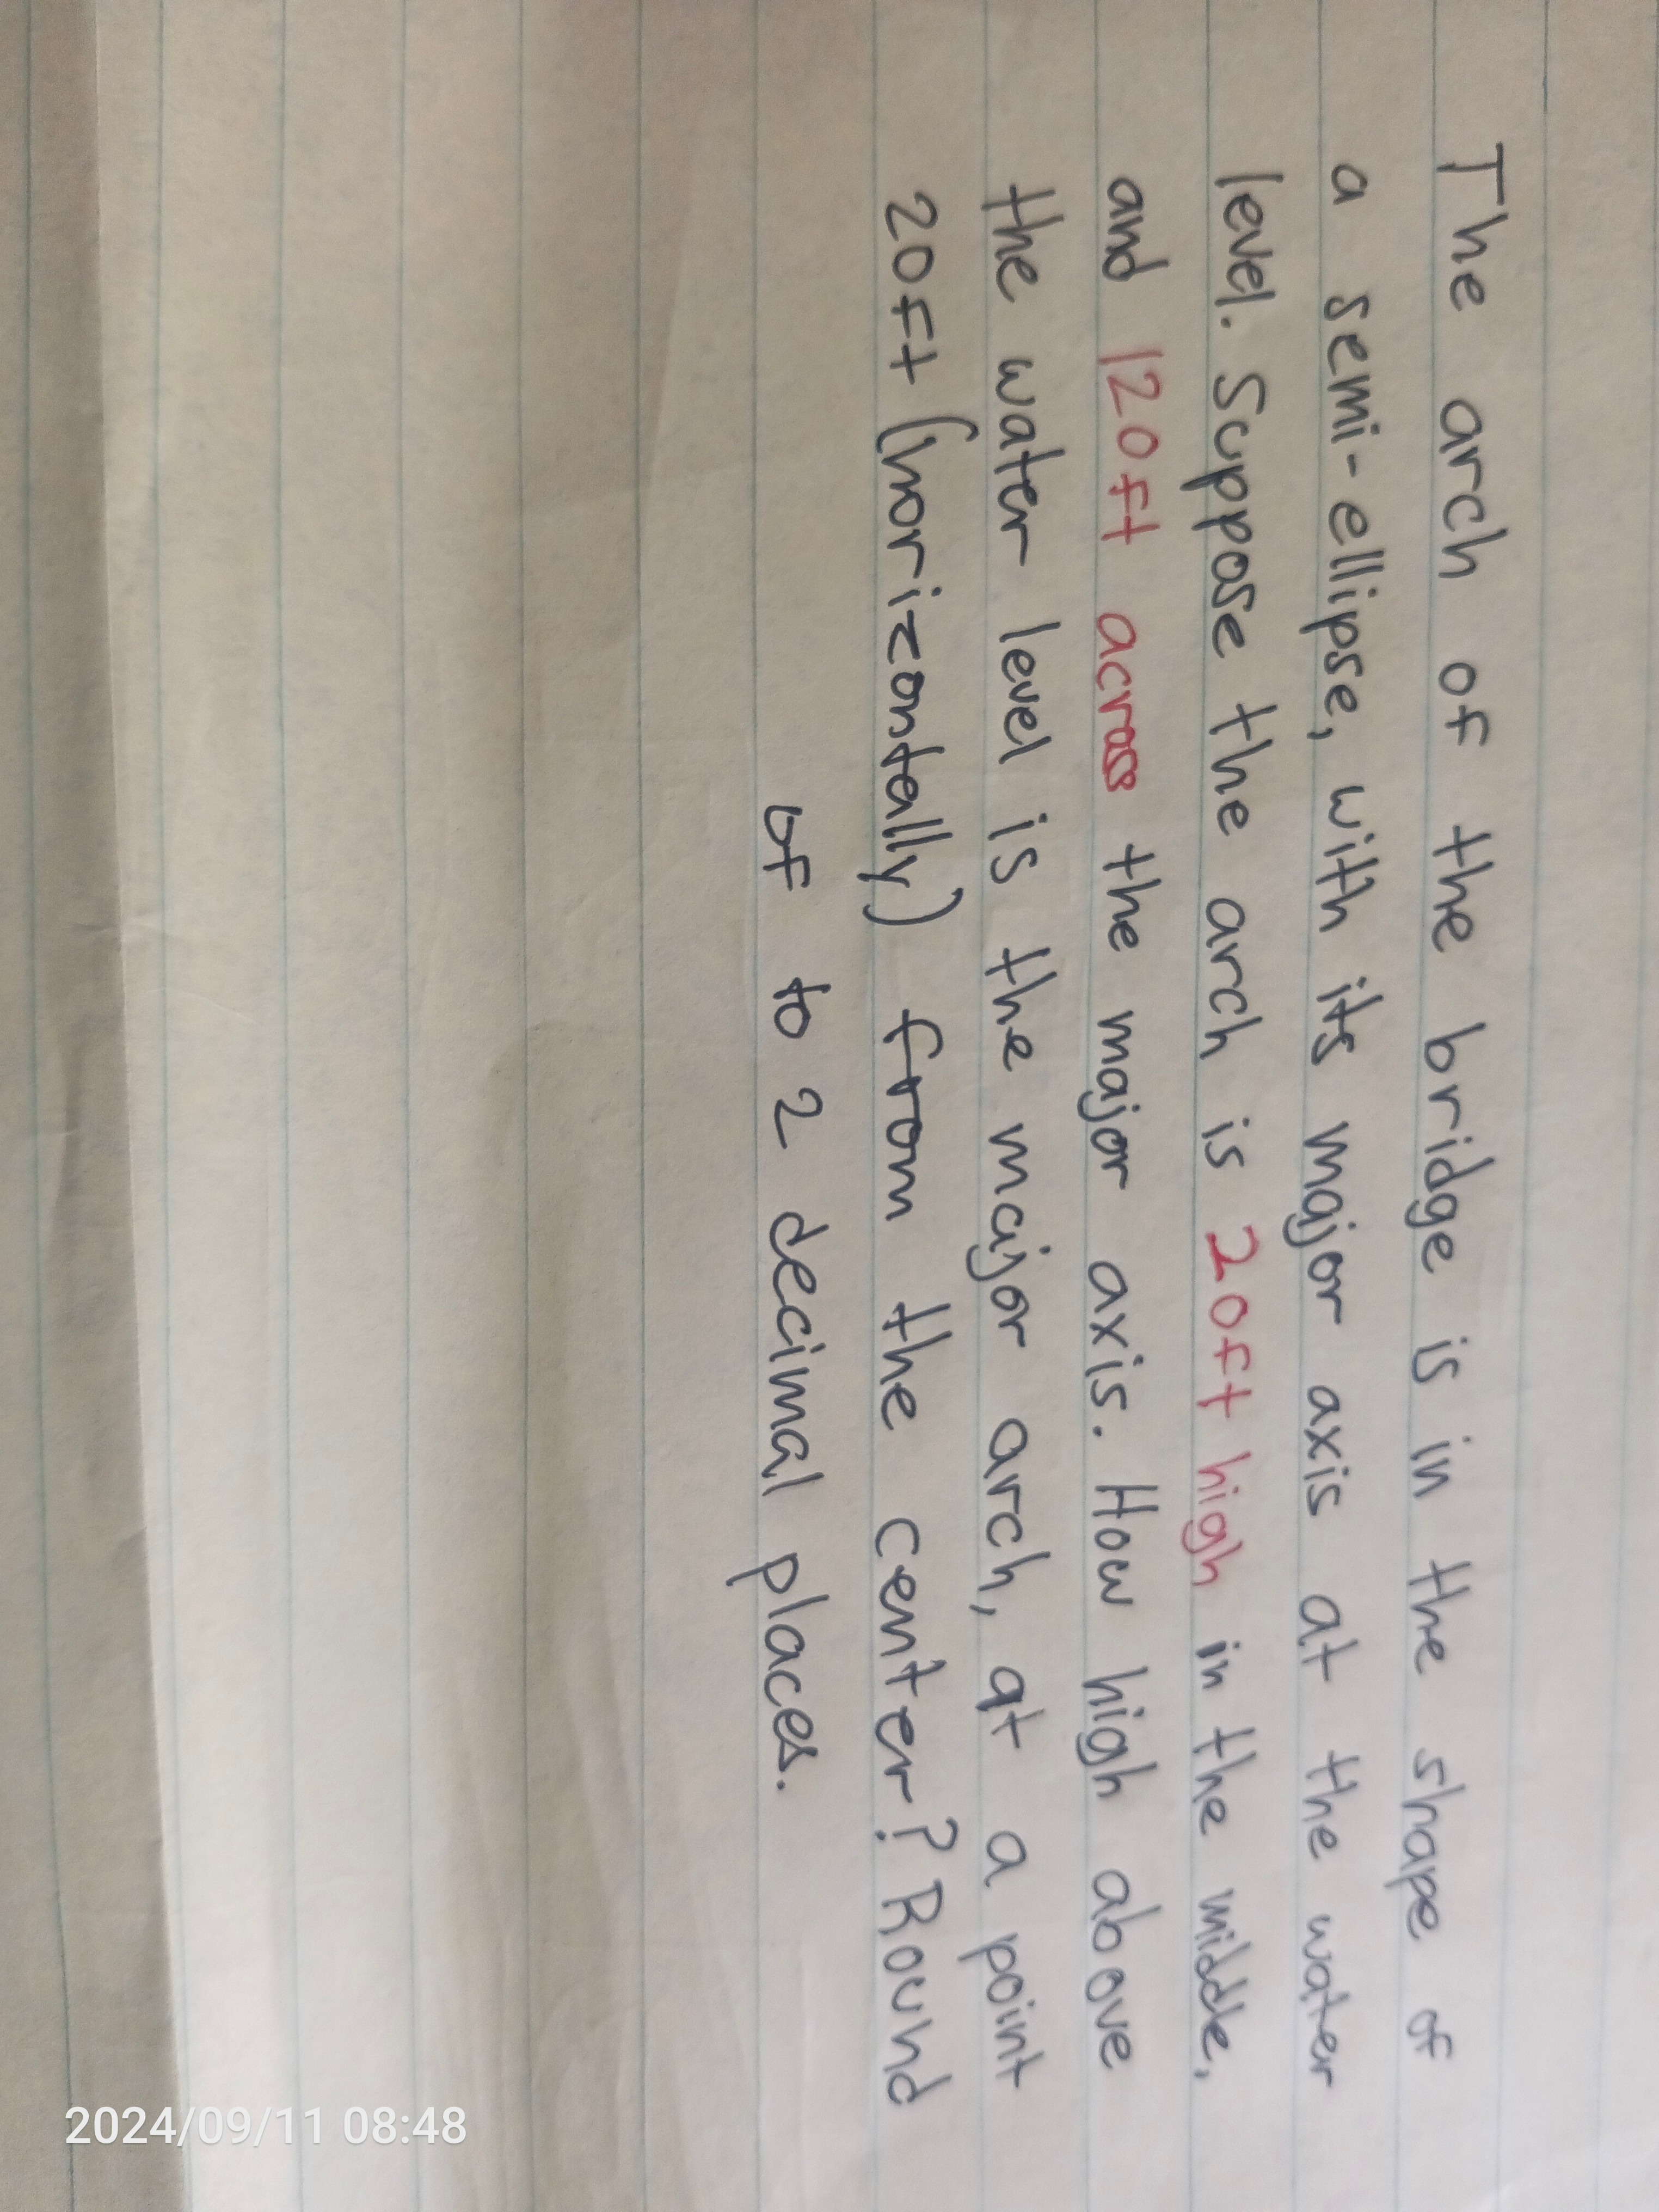 The arch of the bridge is in the shape of
a semi-ellipse, with its major axis at the water
level. Suppose the arch is 20ft high in the middle,
and 120ft across the major axis. How high above
the water level is the major arch, at a point
20ft (horizontally) from the center? Round
of to 2 decimal places.
2024/09/11 08:48